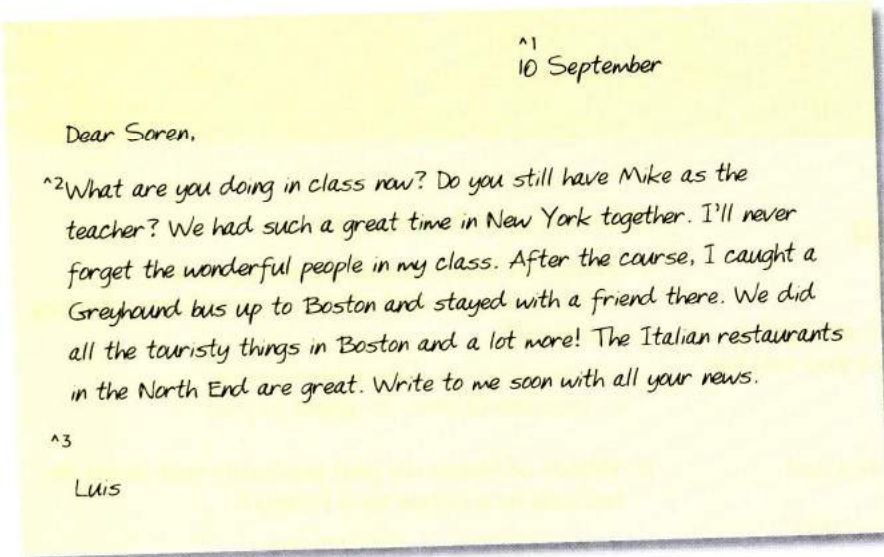 ^1
10 September
Dear Soren,
^2What are you doing in class now? Do you still have Mike as the
teacher? We had such a great time in New York together. I'll never
forget the wonderful people in my class. After the course, I caught a
Greyhound bus up to Boston and stayed with a friend there. We did
all the touristy things in Boston and a lot more! The Italian restaurants
in the North End are great. Write to me soon with all your news.
^3
Luis